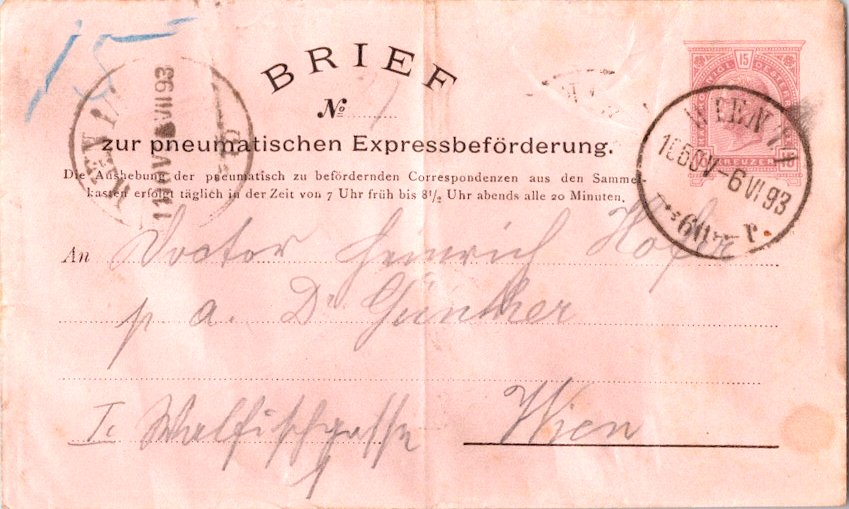 15
BRIEF
№
zur pneumatischen Expressbeförderung.
Die Aushebung der pneumatisch zu befördernden Correspondenzen aus den Samme
kasten erfolgt täglich in der Zeit von 7 Uhr früh bis 8½ Uhr abends alle 20 Minuten.
15
KREUZER
WIEN
-6 VI 93
An Doctor Heinrich Hofer
p a. Dr Günther
I. Walfischgasse
Wien